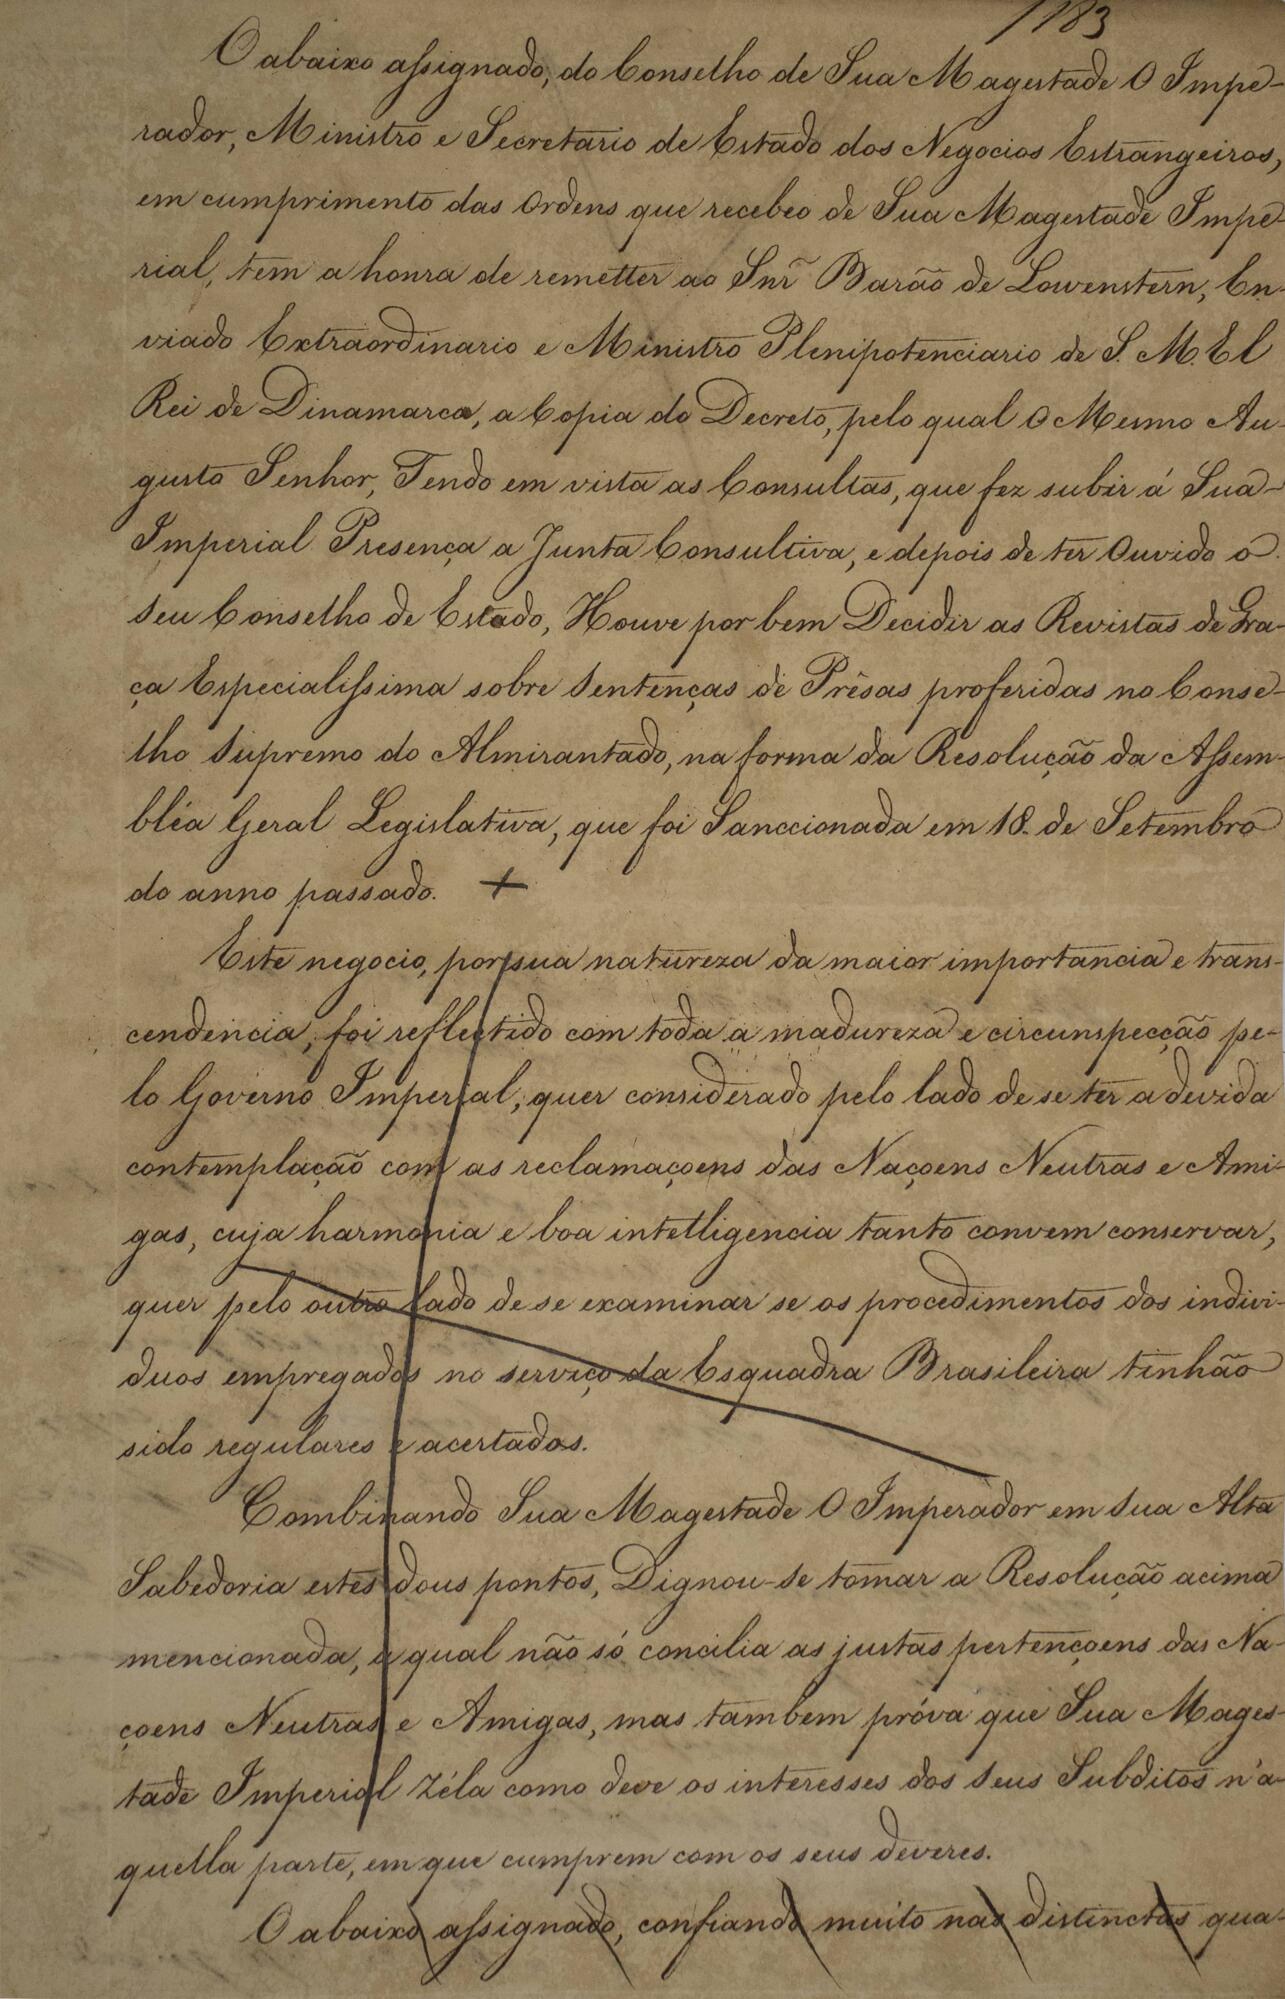 1183
O abaixo assignado, do Conselho de Sua Magestade O Impe-
rador, Ministro e Secretario de Estado dos Negocios Estrangeiros,
em cumprimento das Ordens que recebeo de Sua Magestade Impe-
rial, tem a honra de remetter ao Snr̃ Barão de Lowenstern, En-
viado Extraordinario e Ministro Plenipotenciario de S. M. El
Rei de Dinamarca, a Copia do Decreto, pelo qual O Mesmo Au-
gusto Senhor, Tendo em vista as Consultas, que fez subir á Sua
Imperial Presença a Junta Consultiva, e depois de ter Ouvido o
Seu Conselho de Estado, Houve por bem Decidir as Revistas de Gra-
ça Especialissima sobre Sentenças de Prêsas proferidas no Conse-
lho Supremo do Almirantado, na forma da Resolução da Assem-
bléa Geral Legislativa, que foi Sanccionada em 18. de Setembro
do anno passado. +
Este negocio, por sua natureza da maior importancia e trans-
cendencia, foi reflectido com toda a madureza e circunspecção pe-
lo Governo Imperial, quer considerado pelo lado de se ter a devida
contemplação com as reclamaçoens das Naçoens Neutras e Ami-
gas, cuja harmonia e boa intelligencia tanto convem conservar,
quer pelo outro lado de se examinar se os procedimentos dos indivi-
duos empregados no serviço da Esquadra Brasileira tinhão
sido regulares e acertados.
Combinando Sua Magestade O Imperador em Sua Alta
Sabedoria estes dous pontos, Dignou-se tomar a Resolução acima
mencionada, a qual não só concilia as justas pertençoens das Na-
çoens Neutras e Amigas, mas tambem próva que Sua Mages-
tade Imperial Zéla como deve os interesses dos Seus Subditos n'a-
quella parte, em que cumprem com os seus deveres.
O abaixo assignado, confiando muito nas distinctas qua-